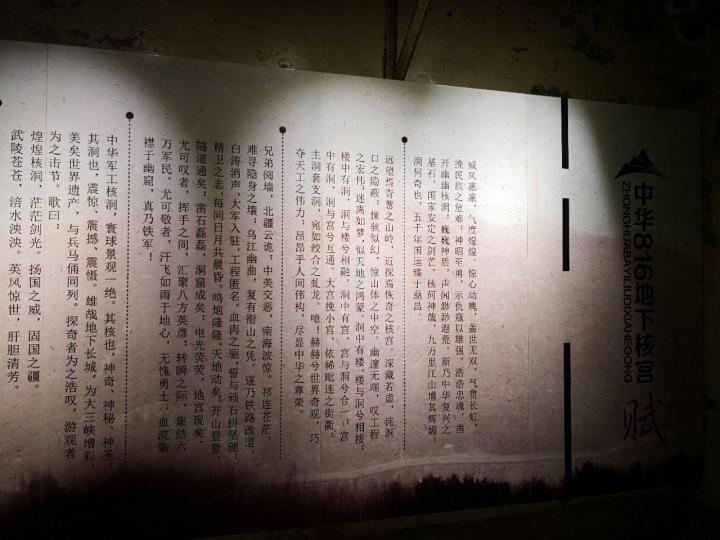 中华816地下核宫
ZHONGHUABAYILIUDIXIAHEGONG
赋
威风凛凛，气度煌煌。惊心动魄，盖世无双。气贯长虹，
挽民族之危难；神昭至勇，示仇寇以雄强。浩浩忠魂，凿
开幽幽核洞；巍巍神盾，声闻渺渺遐荒。斯乃中华复兴之
基石，国家安定之剑芒。核何神哉，九万里江山增其辉煌
洞何奇也，五千年国运臻于鼎昌。
远望焉青葱之山岭，近探焉恢奇之核宫。深藏若虚，诧洞
口之隐蔽；惊骇似幻，惊山体之中空。幽邃无垠，叹工程
之宏伟；迷离如梦，似天地之鸿蒙。洞中有楼，楼与洞兮相接；
楼中有洞，洞与楼兮相融。洞中有宫，宫与洞兮合一；宫
中有洞，洞与宫兮互通。大宫挽小宫，依稀毗连之街衢；
主洞套支洞，宛如绞合之虬龙。噫！赫赫兮世界奇观，巧
夺天工之伟力；昂昂乎人间伟构，尽显中华之尊荣。
兄弟阋墙，北疆云诡；中美交恶，南海波惊。祁连苍茫，
难寻隐身之壤；乌江幽曲，复有衔山之凭。遂乃铁路改道，
白涛消声。大军入驻，工程匿名。血肉之躯，誓与顽石拼坚硬；
精卫之志，每同日月共晨昏。鸣炮隆隆，天地动矣，开山登登，
隧道通矣；凿石磊磊，洞窟成矣；电光荧荧，地宫现矣。
尤可叹者，挥手之间，汇聚八方英彦；转瞬之际，集结六
万军民。尤可敬者，汗飞如雨于地心，无愧勇士；血流染
襟于幽窟，真乃铁军！
中华军工核洞，寰球景观一绝。其核也，神奇、神秘、神圣；
其洞也，震惊、震撼、震慑。雄哉地下长城，为大三峡增彩；
美矣世界遗产，与兵马俑同列。探奇者为之浩叹，游观者
为之击节。歌曰：
煌煌核洞，茫茫剑光。扬国之威，固国之疆。
武陵苍苍，涪水泱泱。英风惊世，肝胆清芳。